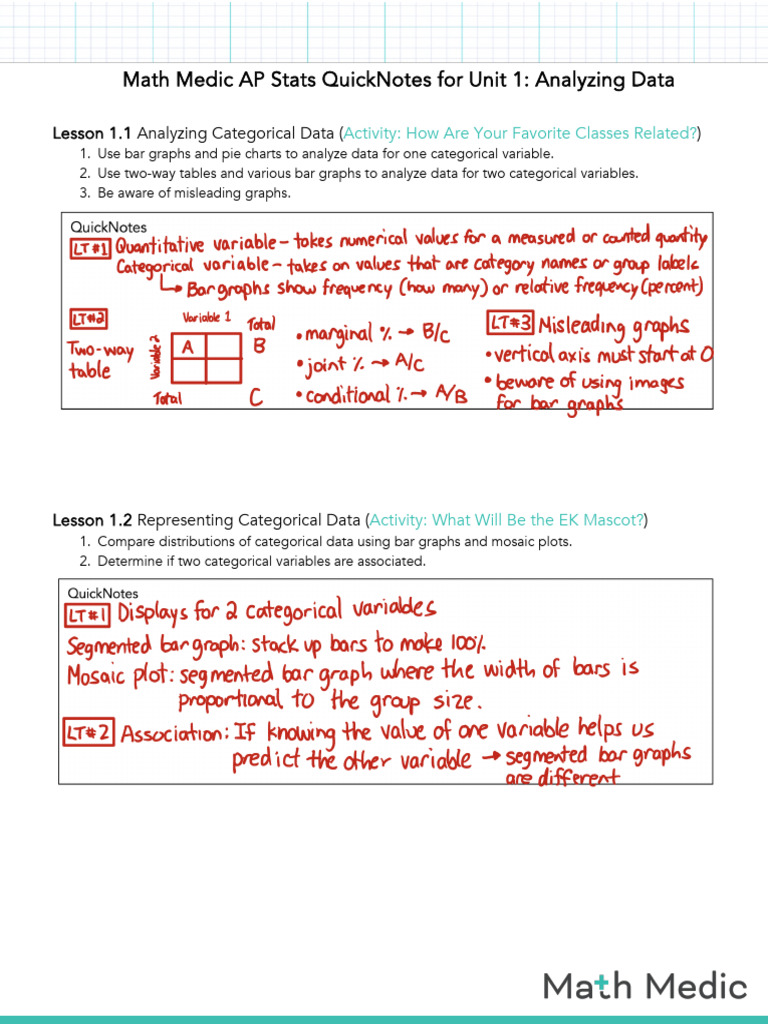 Math Medic AP Stats QuickNotes for Unit 1: Analyzing Data
Lesson 1.1 Analyzing Categorical Data (Activity: How Are Your Favorite Classes Related?)
1. Use bar graphs and pie charts to analyze data for one categorical variable.
2. Use two-way tables and various bar graphs to analyze data for two categorical variables.
3. Be aware of misleading graphs.
QuickNotes
LT #1 Quantitative variable – takes numerical values for a measured or counted quantity
Categorical variable – takes on values that are category names or group labels
↳ Bar graphs show frequency (how many) or relative frequency (percent)
LT#2
Two-way
table
Variable 1
Total
Variable 2
A
B
Total
C
• marginal % → B/C
• joint % → A/C
• conditional % → A/B
LT#3 Misleading graphs
• vertical axis must start at 0
• beware of using images
for bar graphs
Lesson 1.2 Representing Categorical Data (Activity: What Will Be the EK Mascot?)
1. Compare distributions of categorical data using bar graphs and mosaic plots.
2. Determine if two categorical variables are associated.
QuickNotes
LT#1 Displays for 2 categorical variables
Segmented bar graph: stack up bars to make 100%.
Mosaic plot: segmented bar graph where the width of bars is
proportional to the group size.
LT#2 Association: If knowing the value of one variable helps us
predict the other variable → segmented bar graphs
are different
Math Medic